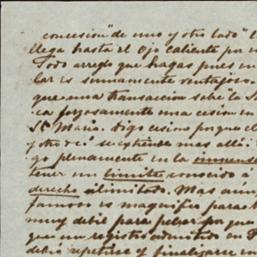 concesion "de uno y otro lado"
llega hasta el Ojo caliente por
Todo arreglo que hagas pues en
lar es sumamente ventajoso.
que una transaccion sobre la
ca forzosamente una cesion en
Sta. Maria. Digo cesion porque el
y otro se estiende mas allá
go plenamente en la inmensa
tener un limite conocido á
derecho ilimitado. Mas aun
famos es magnifico para
muy debil para pelear por que
que un registro admitido en
debió repetirse y finalizarse en